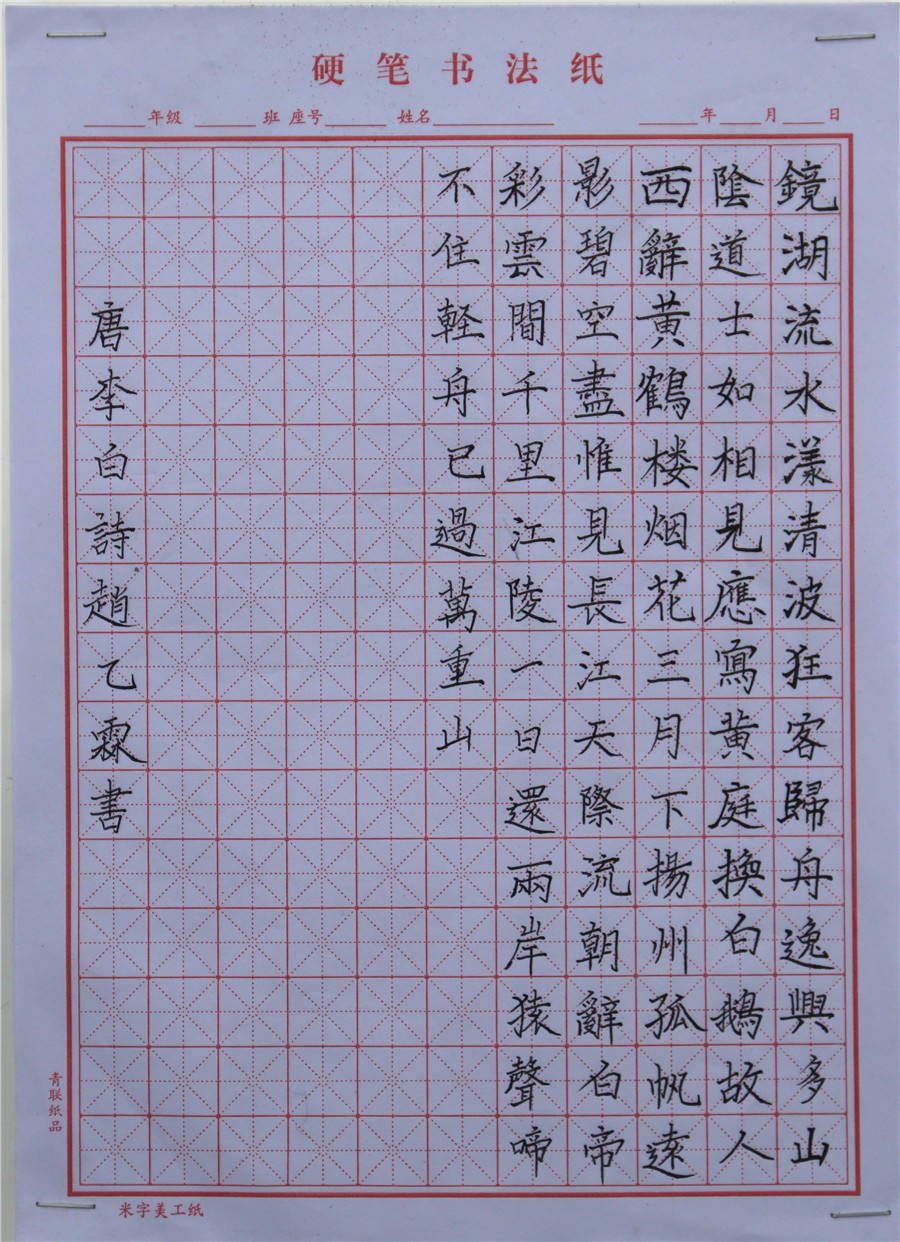 硬笔书法纸
年级 班 座号 姓名 年 月 日
鏡湖流水漾清波狂客歸舟逸興多山
陰道士如相見應寫黄庭換白鵝故人
西辭黄鶴楼烟花三月下揚州孤帆遠
影碧空盡惟見長江天際流朝辭白帝
彩雲間千里江陵一日還兩岸猿聲啼
不住軽舟已過萬重山
唐李白詩趙乙霖書
青联纸品
米字美工纸